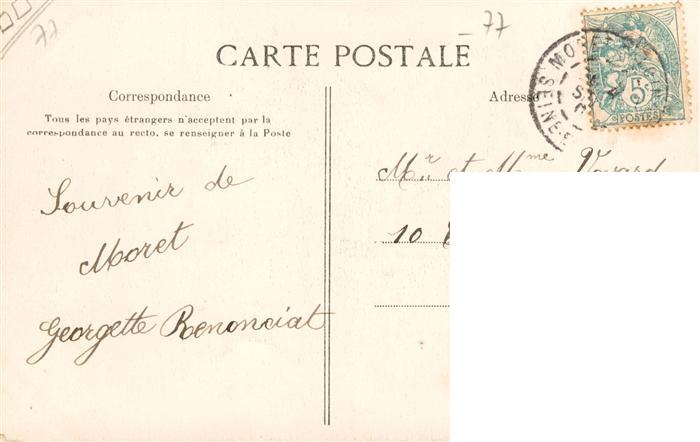 77
77
CARTE POSTALE
Correspondance
Tous les pays étrangers n'acceptent par la
correspondance au recto, se renseigner à la Poste
Souvenir de
Moret
Georgette Renonciat
Adresse
MORET
SEINE
5c
POSTES
Mr et Mme Voyard
10